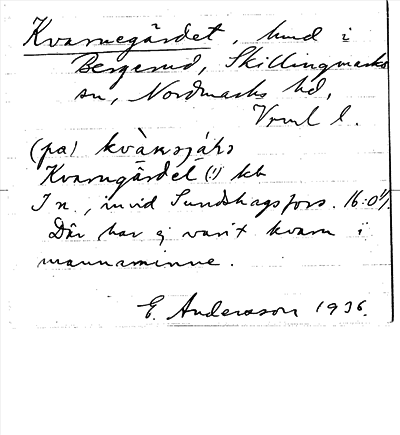 Kvarnegärdet, hmd i
Bergerud, Skillingmarks
sn, Nordmarks hd,
Vrml l.
(på) kvà̀nsjáḷs
Kvarngärdet (!) kk
I n., invid Sundhagsfors. 16:0%.
Där har ej varit kvarn i
mannaminne.
E. Andersson 1936.